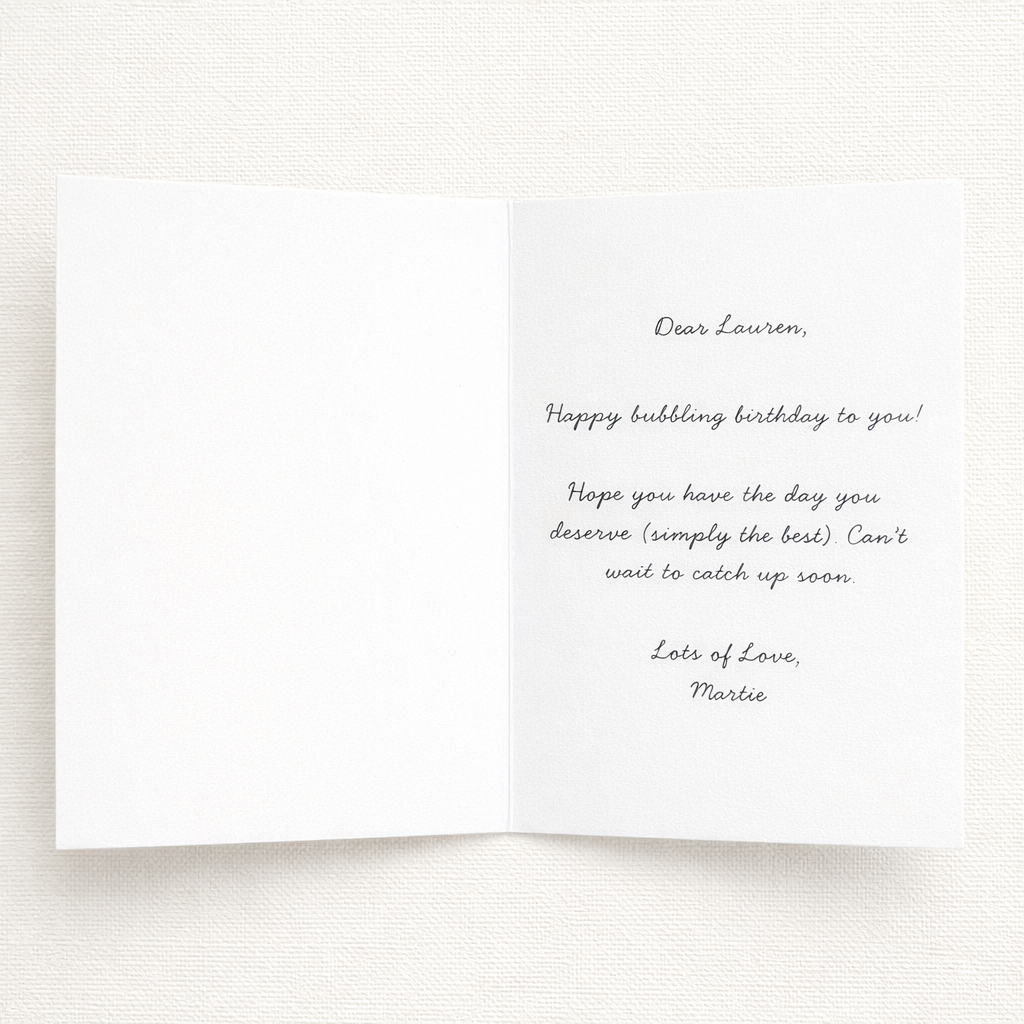 Dear Lauren,
Happy bubbling birthday to you!
Hope you have the day you
deserve (simply the best). Can't
wait to catch up soon.
Lots of Love,
Martie